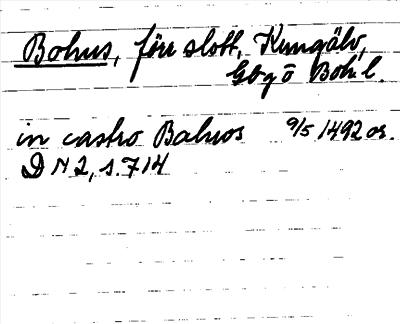 Bohus, förr slott, Kungälv,
Gbg o Boh. l.
in castro Bahws 9/5 1492 or.
DN 2, s. 714